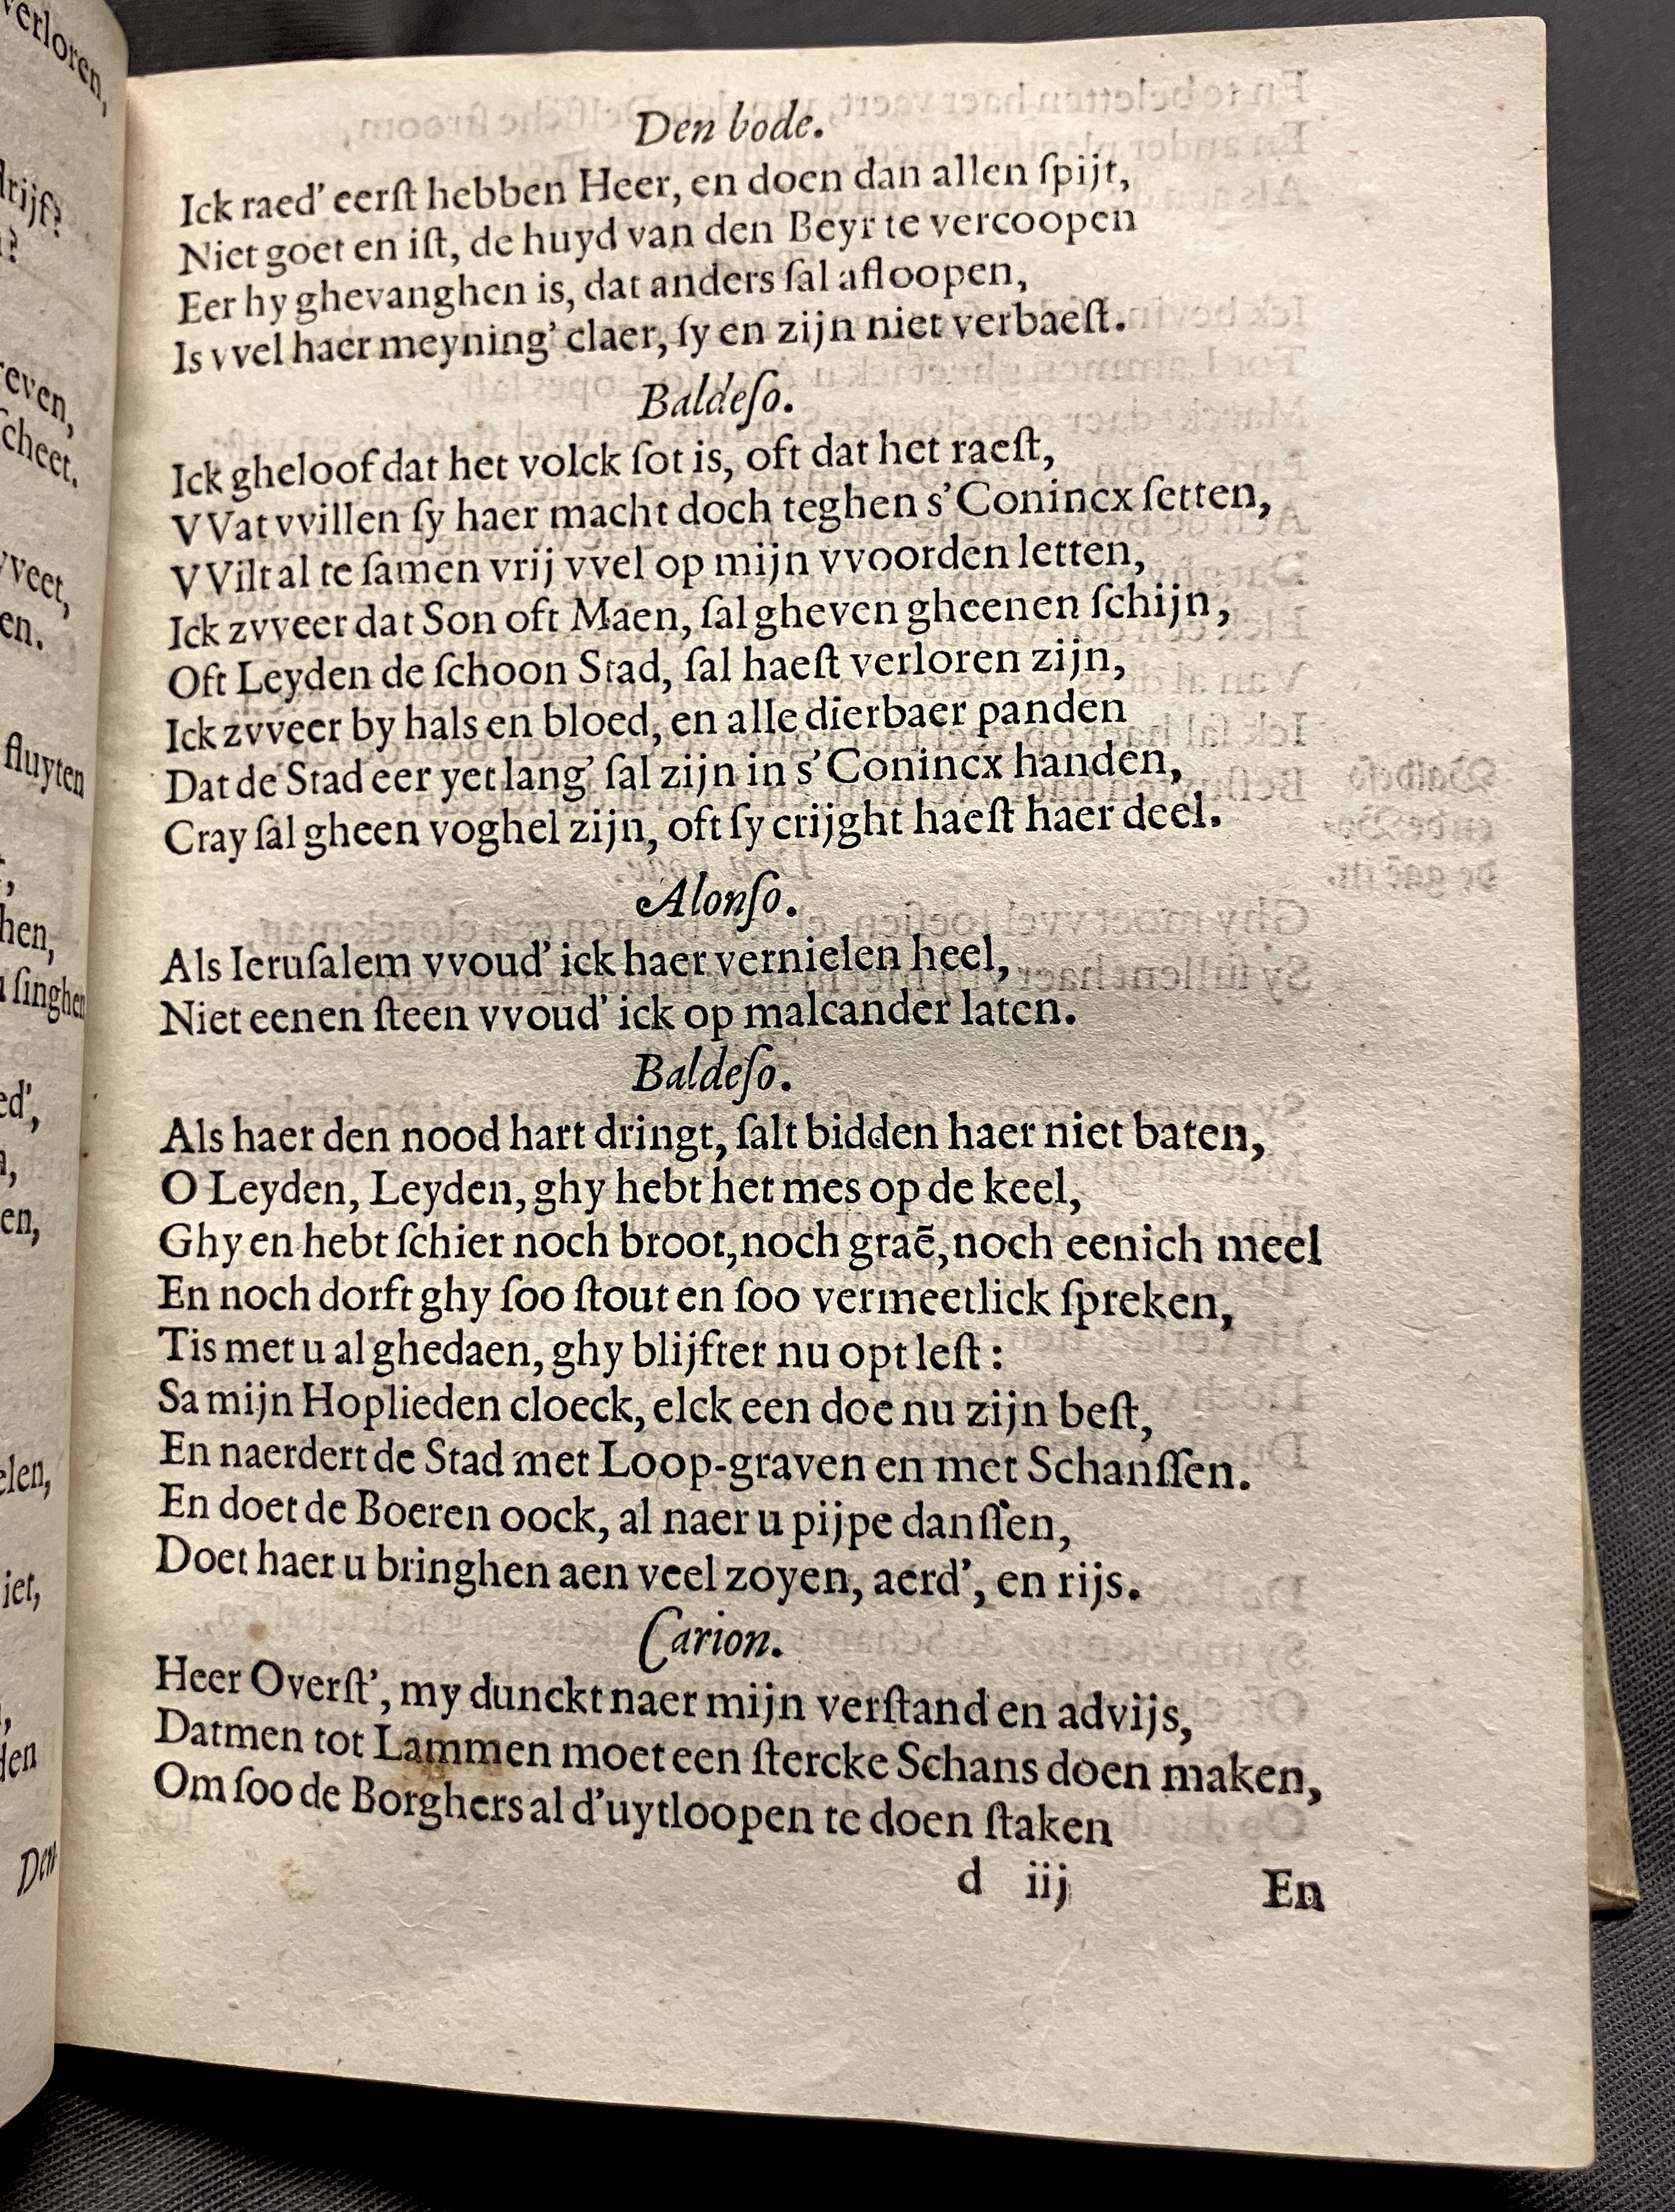 Den bode.
Ick raed' eerſt hebben Heer, en doen dan allen ſpijt,
Niet goet en iſt, de huyd van den Beyr te vercoopen
Eer hy ghevanghen is, dat anders ſal afloopen,
Is vvel haer meyning' claer, ſy en zijn niet verbaeſt.
Baldeſo.
Ick gheloof dat het volck ſot is, oft dat het raeſt,
VVat vvillen ſy haer macht doch teghen s'Conincx ſetten,
VVilt al te ſamen vrij vvel op mijn vvoorden letten,
Ick zvveer dat Son oft Maen, ſal gheven gheenen ſchijn,
Oft Leyden de ſchoon Stad, ſal haeſt verloren zijn,
Ick zvveer by hals en bloed, en alle dierbaer panden
Dat de Stad eer yet lang' ſal zijn in s'Conincx handen,
Cray ſal gheen voghel zijn, oft ſy crijght haeſt haer deel.
Alonſo.
Als Ieruſalem vvoud' ick haer vernielen heel,
Niet eenen ſteen vvoud' ick op malcander laten.
Baldeſo.
Als haer den nood hart dringt, ſalt bidden haer niet baten,
O Leyden, Leyden, ghy hebt het mes op de keel,
Ghy en hebt ſchier noch broot, noch graē, noch eenich meel
En noch dorft ghy ſoo ſtout en ſoo vermeetlick ſpreken,
Tis met u al ghedaen, ghy blijfter nu opt leſt:
Sa mijn Hoplieden cloeck, elck een doe nu zijn beſt,
En naerdert de Stad met Loop-graven en met Schanſſen.
En doet de Boeren oock, al naer u pijpe danſſen,
Doet haer u bringhen aen veel zoyen, aerd', en rijs.
Carion.
Heer Overſt', my dunckt naer mijn verſtand en advijs,
Datmen tot Lammen moet een ſtercke Schans doen maken,
Om ſoo de Borghers al d'uytloopen te doen ſtaken
d iij En